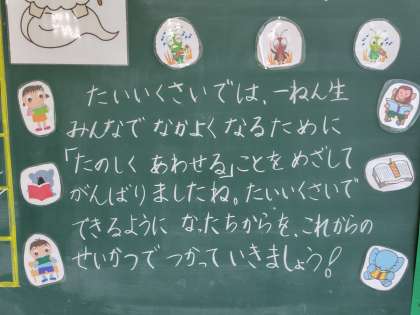 たいいくさいでは、一ねん生
みんなでなかよくなるために
「たのしくあわせる」ことをめざして
がんばりましたね。たいいくさいで
できるようになったちからを、これからの
せいかつでつかっていきましょう！